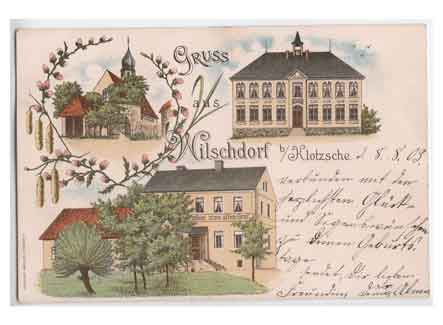 Gruss
aus
Wilschdorf b/Klotzsche. d. 8. 8. 03
verbunden mit den
herzlichsten Glück
und Segenswünschen
zu Deinem Geburts-
tage
sendet Dir liebe
Freundin Alma